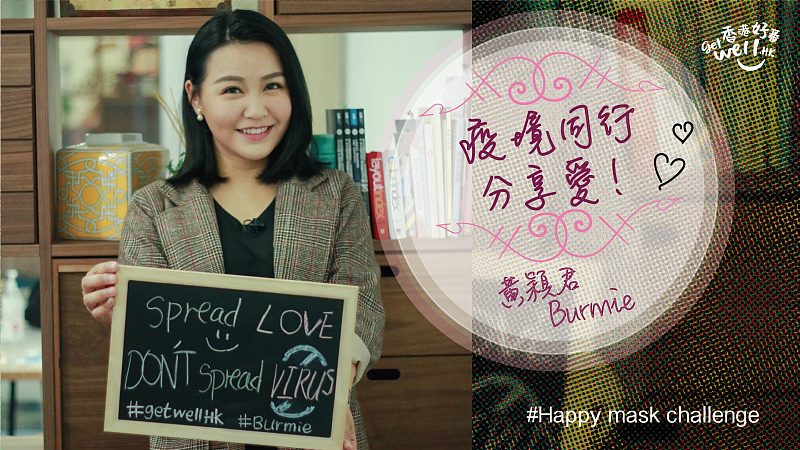 get 香港好番
well.HK
疫境同行
分享愛！
黃穎君
Burmie
Spread LOVE
DON'T Spread VIRUS
#getwellHK #Burmie
layout index
#Happy mask challenge